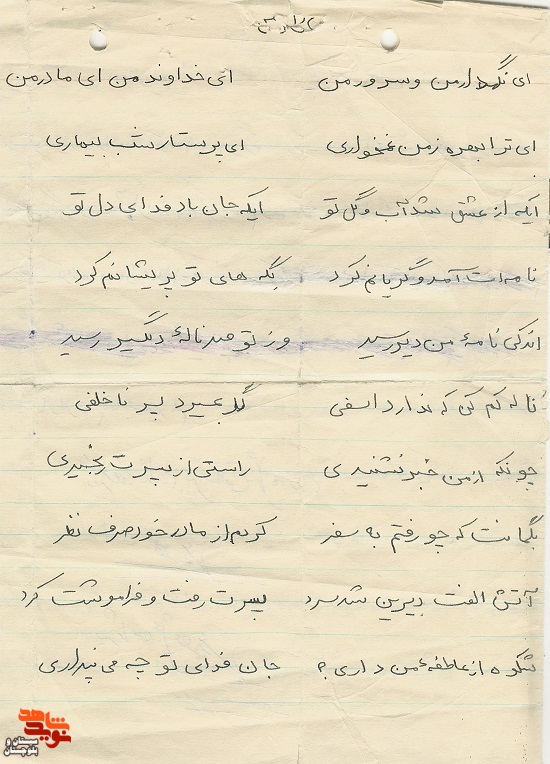 ای نگهدار من و سرور من ای خداوند من ای مادر من
ای ترا بهره ز من غمخواری ای پرستار شب بیماری
ایکه از عشق شد آب و گل تو ایکه جان باد فدای دل تو
نامه ات آمد و گریانم کرد گله های تو پریشانم کرد
اندکی نامهٔ من دیر رسید وز تو صد نالهٔ دلگیر رسید
ناله کم کن که ندارد اسفی گر بمیرد پسر ناخلفی
چونکه از من خبر نشنیدی راستی از پسرت رنجیدی
بگمانت که چو رفتم به سفر کردم از مادر خود صرف نظر
آتش الفت دیرین شد سرد پسرت رفت و فراموشت کرد
شکوه از عاطفهٔ من داری؟ جان فدای تو چه می پنداری
نوید شاهد
سیستان و بلوچستان